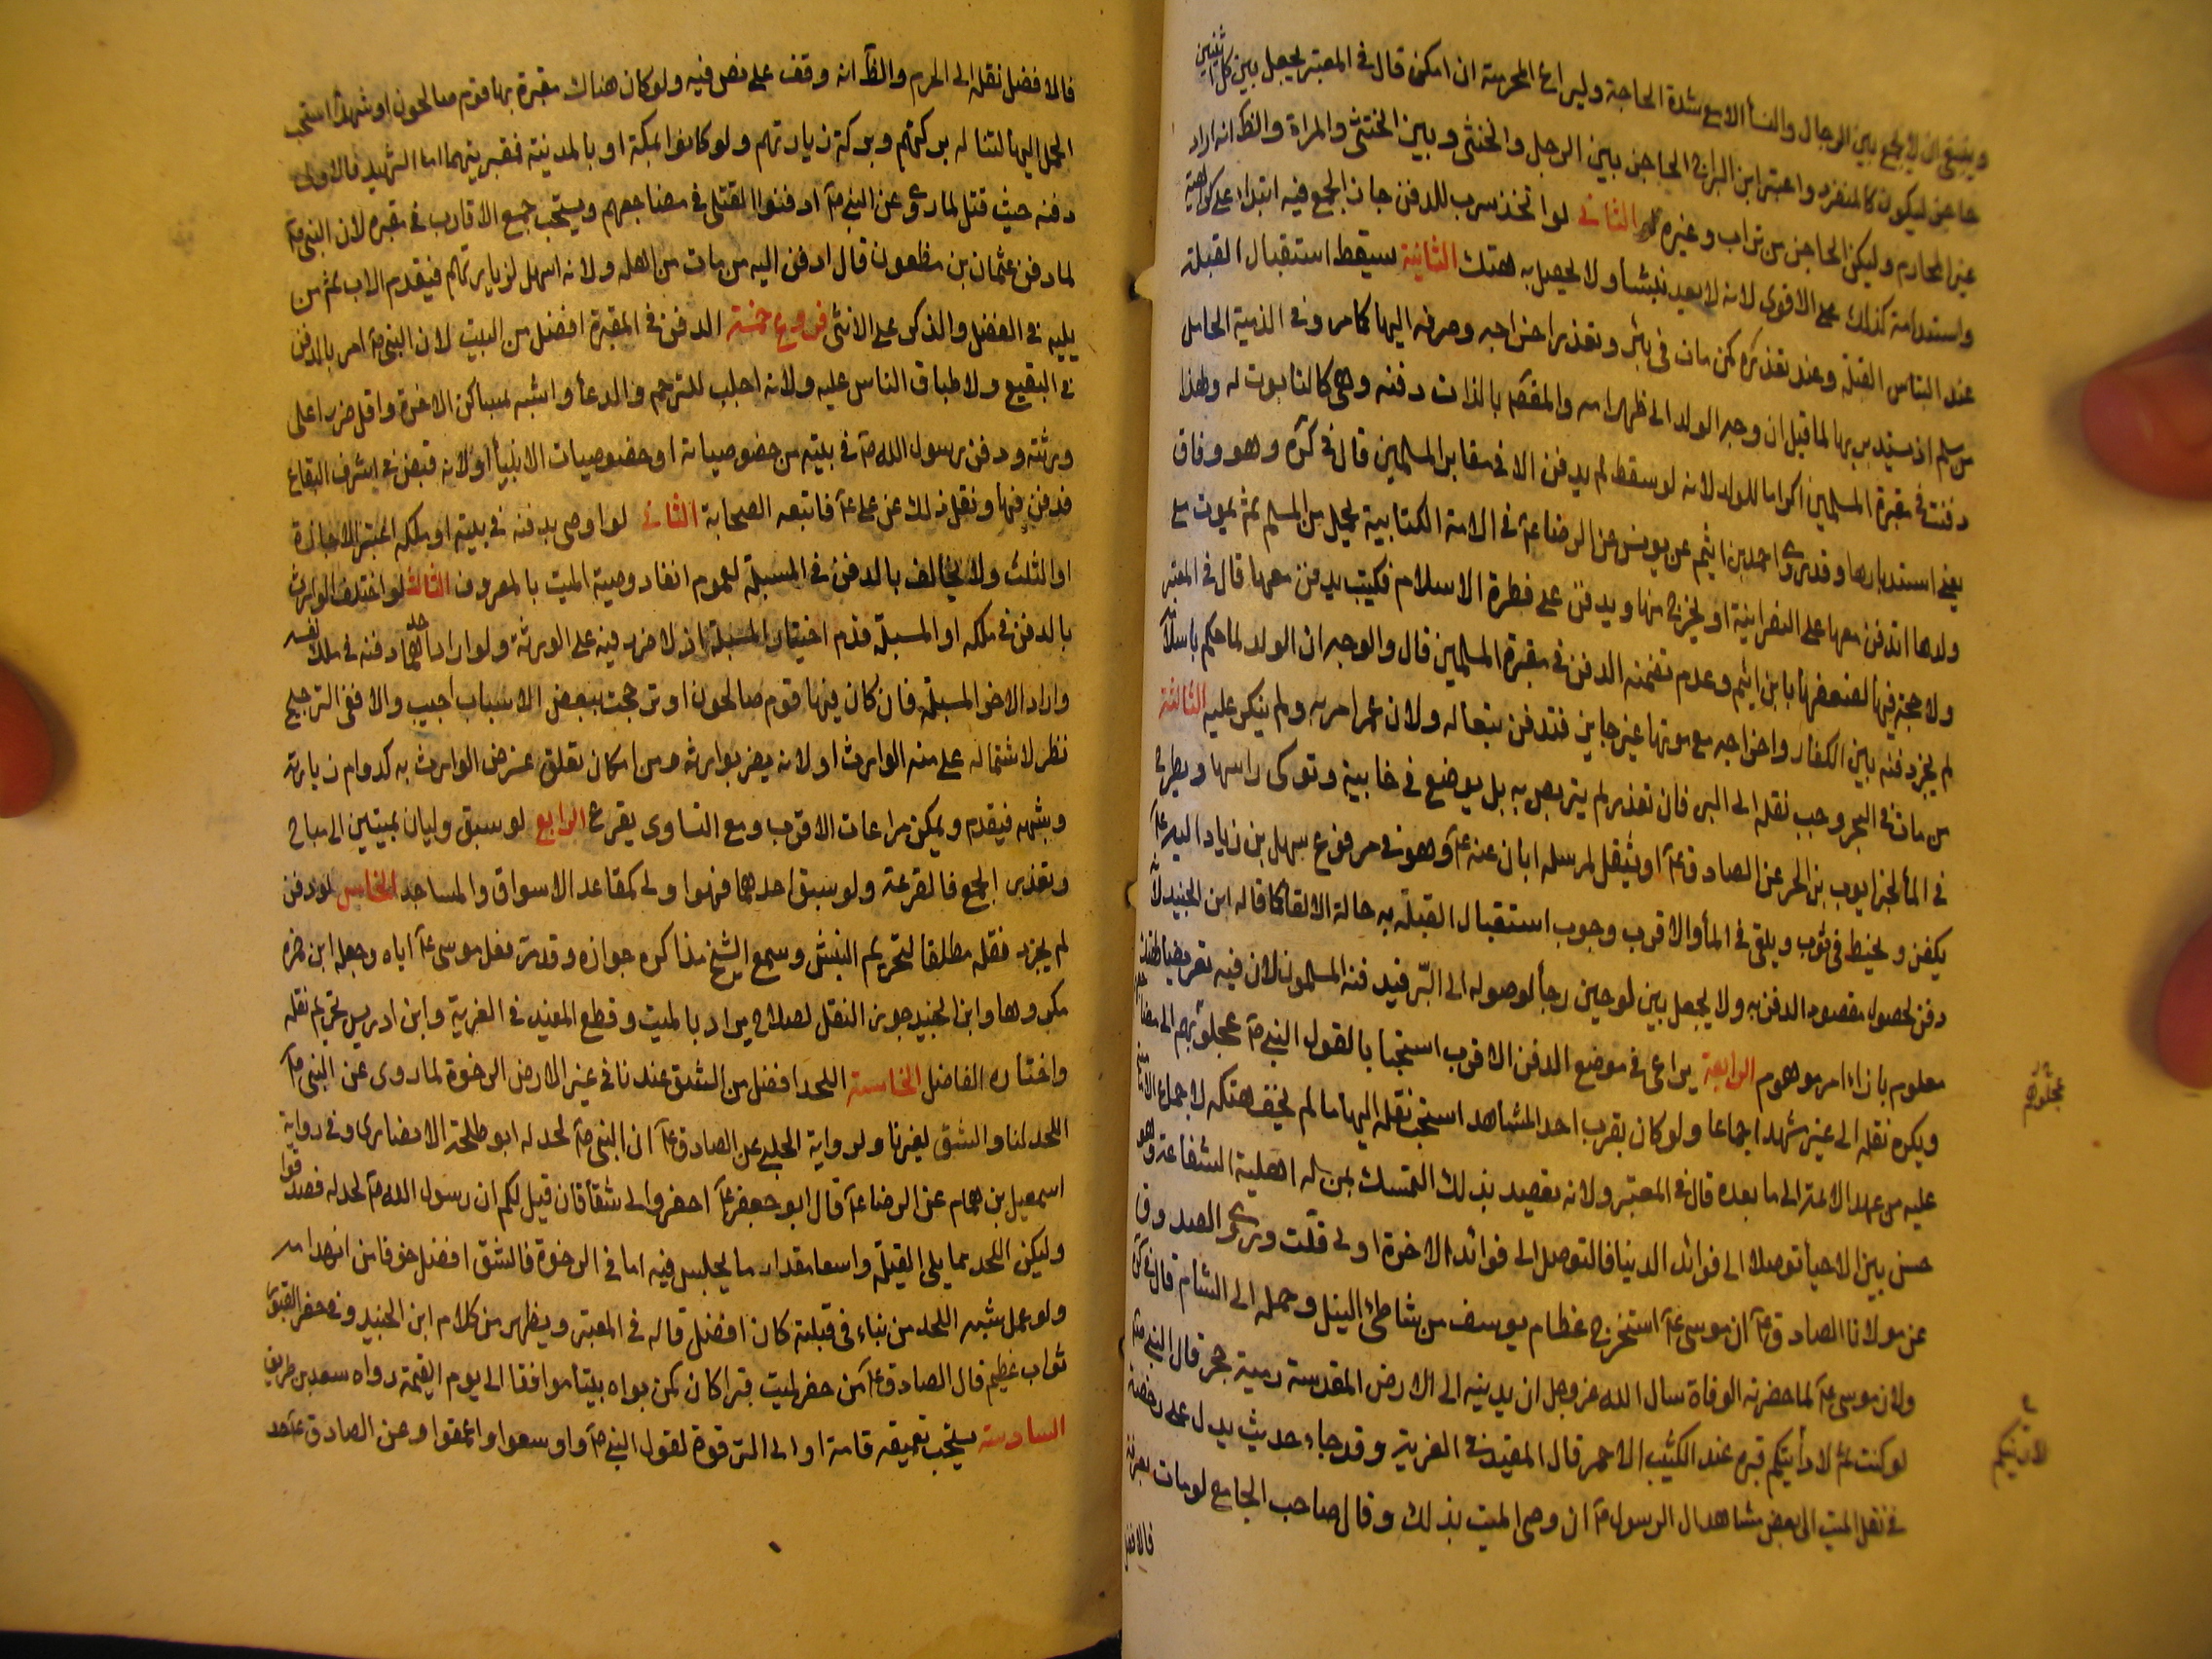 وينبغي ان لا يجمع بين الرجال والنسأ الا مع شدة الحاجة وليراع المحرمية ان امكن قال في المعتبر يجعل بين كل اثنين
حاجز ليكون كالمنفرد واعتبر ابن البراج الحاجز بين الرجل والخنثى وبين الخنثى والمراة والظ انه اراد
غير المحارم وليكن الحاجز من تراب وغيره الثانى لو اتخذ سرب للدفن جاز الجمع فيه ابتداء على كراهية
واستدامة كذلك على الاقوى لانه لا يعد نبشا ولا يحصل به هتك الثانية يسقط استقبال القبلة
عند التباس القبلة وعند تعذره كمن مات في بئر وتعذر اخراجه وصرفه اليها كما مر وفي الذمية الحامل
من مسلم اذ يستدبر بها لما قيل ان وجه الولد الى ظهر امه والمقصم بالذات دفنه وهي كالتابوت له ولهذا
دفنت في مقبرة المسلمين اكراما للولد لانه لو سقط لم يدفن الا في مقابر المسلمين قال في كره وهو وفاق
يعني استدبارها وقد روى احمد بن اشيم عن يونس عن الرضا عم في الامة الكتابية تحمل من المسلم ثم يموت مع
ولدها اتدفن معها على النصرانية او يخرج منها ويدفن على فطرة الاسلام فكتب يدفن معها قال في المعتبر
ولا حجة فيها لضعفها بابن اشيم وعدم تضمنه الدفن في مقبرة المسلمين قال والوجه ان الولد لما حكم باسلامه
لم يجز دفنه بين الكفار واخراجه مع موتها غير جايز فتدفن تبعا له ولان عمر امر به ولم ينكر عليه الثالثة
من مات في البحر وجب نقله الى البر فان تعذر لم يتربص به بل يوضع في خابية وتوكى راسها ويطرح
في المأ لخبر ايوب بن الحر عن الصادق عم او يثقل لمرسلة ابان عنه عم وهو في مرفوع سهل بن زياد اليه عم
يكفن ويحنط في ثوب ويلقى في المأ والاقرب وجوب استقبال القبلة به حالة الالقا كما قاله ابن الجنيد لانه
دفن لحصول مقصود الدفن به ولا يجعل بين لوحين رجأ لوصوله الى البر فيدفنه المسلمون لان فيه تعريضا لهتك
معلوم بازاء امر موهوم الرابعة يراعى في موضع الدفن الاقرب استحبابا لقول النبي ص عجلوا بهم الى مضاجعهم
ويكره نقله الى غير مشهد اجماعا ولو كان بقرب احد المشاهد استحب نقله اليها ما لم يخف هتكه لاجماع الامامية
عليه من عهد الائمة الى ما بعده قال في المعتبر ولانه يقصد بذلك التمسك بمن له اهلية الشفاعة وهو
حسن بين الاحيأ توصلا الى فوائد الدنيا فالتوصل الى فوائد الاخرة اولى قلت وروى الصدوق
عن مولانا الصادق عم ان موسى عم استخرج عظام يوسف من شاطئ النيل وحمله الى الشام قال في كره
ولان موسى عم لما حضرته الوفاة سال الله عز وجل ان يدنيه الى الارض المقدسة رمية حجر قال النبي ص
لو كنت ثم لارأيتكم قبره عند الكثيب الاحمر قال المفيد في العزية وقد جاء حديث يدل على رخصة
في نقل الميت الى بعض مشاهد ال الرسول ص ان وصى الميت بذلك وقال صاحب الجامع لو مات بعرفة
فالافضل
عجلوهم
لاريتكم
فالافضل نقله الى الحرم والظ انه وقف على نص فيه ولو كان هناك مقبرة بها قوم صالحون او شهدأ استحب
الحمل اليها لتناله بركتهم وبركة زيارتهم ولو كانوا بمكة او بالمدينة فقبر يتيهما اما الشهيد فالاولى
دفنه حيث قتل لما روى عن النبي ص ادفنوا القتلى في مضاجعهم ويستحب جمع الاقارب في مقبره لان النبي ص
لما دفن عثمان بن مظعون قال ادفن اليه من مات من اهله ولانه اسهل لزيارتهم فيقدم الاب ثم من
يليه في الفضل والذكر على الانثى فروع خمسة الدفن في المقبرة افضل من البيت لان النبي ص امر بالدفن
في البقيع ولاطباق الناس عليه ولانه اجلب للترحم والدعأ واشبه بمساكن الاخرة واقل ضررا على
ورثته ودفن رسول الله ص في بيته من خصوصياته او خصوصيات الانبيأ او لانه قبض في اشرف البقاع
فدفن فيها ونقل ذلك عن على عم فاتبعه الصحابة الثانى لو اوصى بدفنه في بيته او ملكه اعتبر الاجازة
او الثلث ولا يخالف بالدفن في المسبلة لعموم انفاد وصية الميت بالمعروف الثالث لو اختلف الوارث
بالدفن في ملكه او المسبلة قدم اختيار المسبلة اذ لا ضرر فيه على الورثة ولو اراد احدهما دفنه في ملك نفسه
واراد الاخر المسبلة فان كان فيها قوم صالحون او ترجحت ببعض الاسباب اجيب والا ففى الترجيح
نظر لاشتماله على منه الوارث او لانه يضر بوارثه ومن امكان تعلق غرض الوارث به كدوام زيارته
وشبهه فيقدم ويمكن مراعات الاقرب ومع التساوى يقرع الرابع لو سبق وليان بميتين الى مباح
وتعذر الجمع فالقرعة ولو سبق احدهما فهو اولى كمقاعد الاسواق والمساجد الخامس لو دفن
لم يجز نقله مطلقا لتحريم النبش وسمع الشيخ مذاكره جوازه وقد مر نقل موسى عم اياه وجعله ابن حمزه
مكروها وابن الجنيد جوز النقل لصلاح يراد بالميت وقطع المفيد في العزية وابن ادريس بتحريم نقله
واختاره الفاضل الخامسة اللحد افضل من الشق عندنا في غير الارض الرخوة لما روى عن النبي ص
اللحد لنا والشق لغيرنا ولرواية الحلبي عن الصادق عم ان النبي ص لحد له ابو طلحة الانصارى وفي رواية
اسمعيل بن همام عن الرضا عم قال ابو جعفر عم احفروا لى شقا فان قيل لكم ان رسول الله ص لحد له فصدقوا
وليكن اللحد مما يلى القبلة واسعا مقدار ما يجلس فيه اما في الرخوة فالشق افضل خوفا من انهدامه
ولو عمل شبه اللحد من بناء في قبلته كان افضل قاله في المعتبر ويظهر من كلام ابن الجنيد وفي حفر القبور
ثواب عظيم قال الصادق عم من حفر لميت قبرا كان كمن بواه بيتا موافقا الى يوم القيمة رواه سعد بن طريف
السادسة يستحب تعميقه قامة او الى الترقوة لقول النبي ص واوسعوا واعمقوا وعن الصادق عم حد